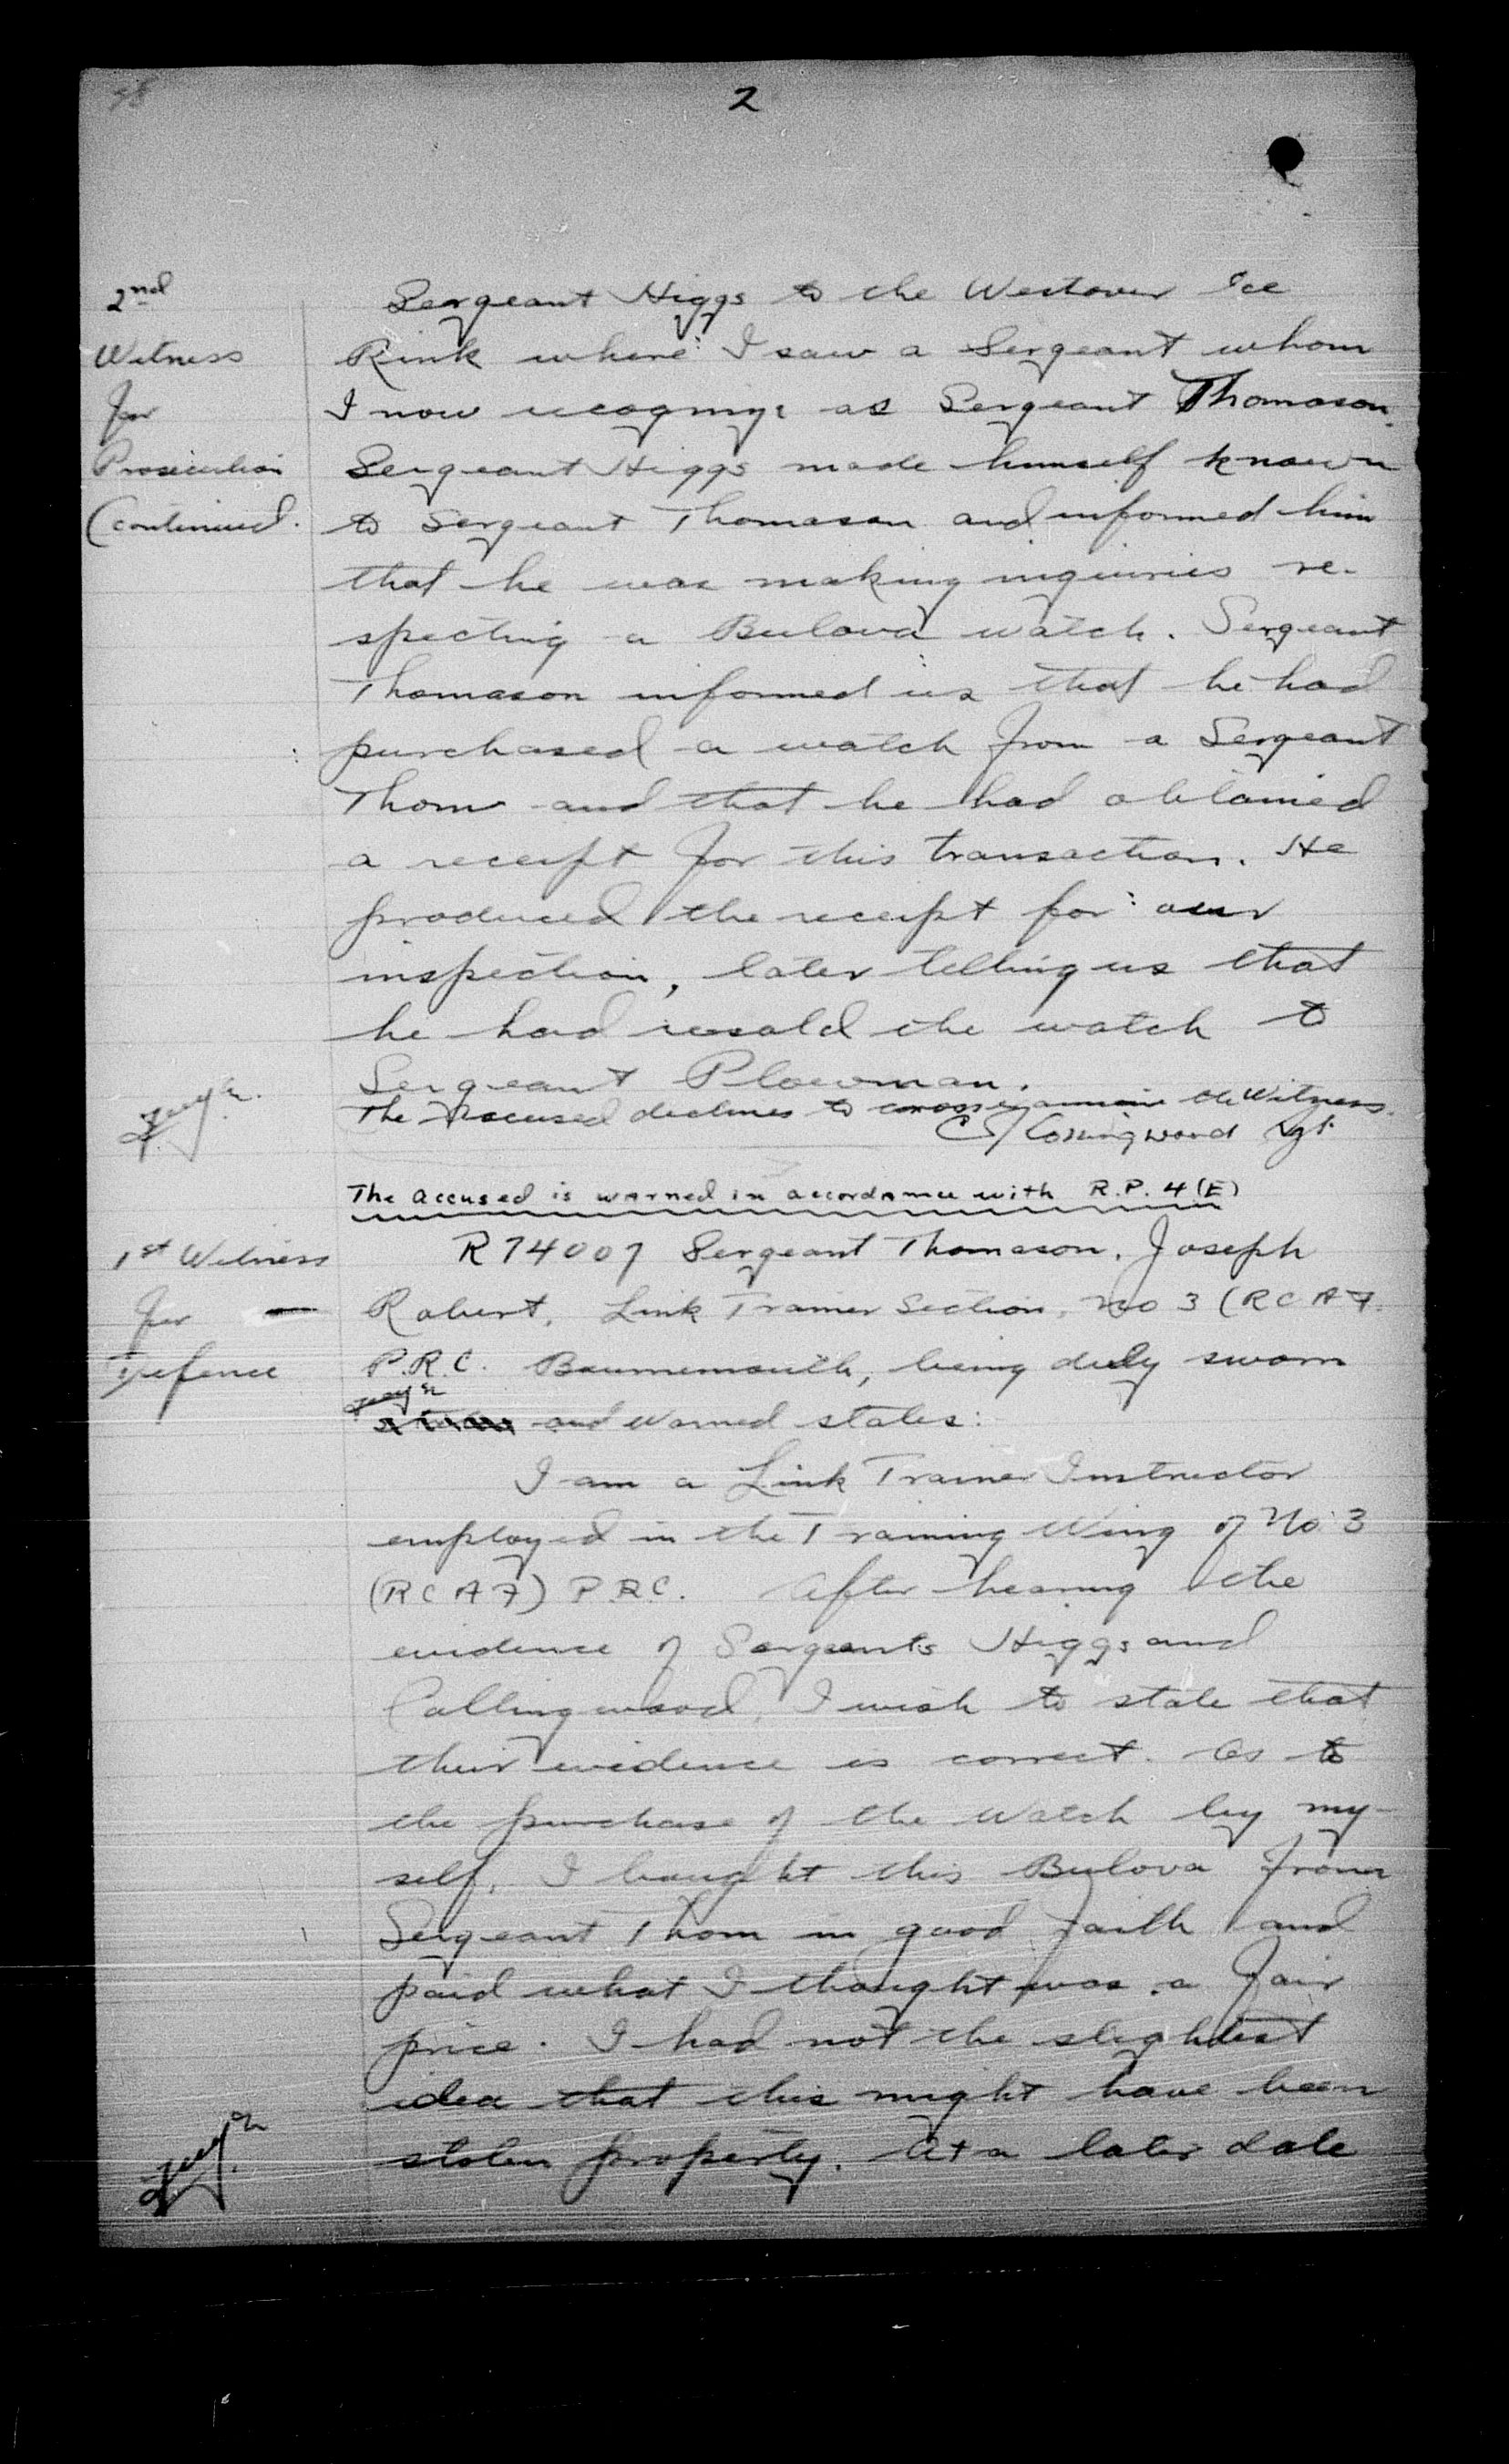 2
2nd
Witness
for
Prosecution
(continued.
Sergeant Higgs to the Westover Ice
Rink where I saw a Sergeant whom
I now recognize as Sergeant Thomason.
Sergeant Higgs made himself known
to Sergeant Thomason and informed him
that he was making inquiries re-
specting a Bulova watch. Sergeant
Thomason informed us that he had
purchased a watch from a Sergeant
Thom and that he had obtained
a receipt for this transaction. He
produced the receipt for our
inspection, later telling us that
he had resold the watch to
Sergeant Plowman.
The Accused declines to cross examine the Witness.
Collingwood Sgt.
The accused is warned in accordance with R.P. 4 (E)
1st Witness
for
Defence
R74007 Sergeant Thomason, Joseph
Robert, Link Trainer Section, No 3 (RCAF
P.R.C. Bournemouth, being duly sworn
and warned states:
I am a Link Trainer Instructor
employed in the Training Wing of No 3
(RCAF) P.R.C. After hearing the
evidence of Sergeants Higgs and
Collingwood, I wish to state that
their evidence is correct. As to
the purchase of the watch by my-
self, I bought this Bulova from
Sergeant Thom in good faith and
paid what I thought was a fair
price. I had not the slightest
idea that this might have been
stolen property. At a later date